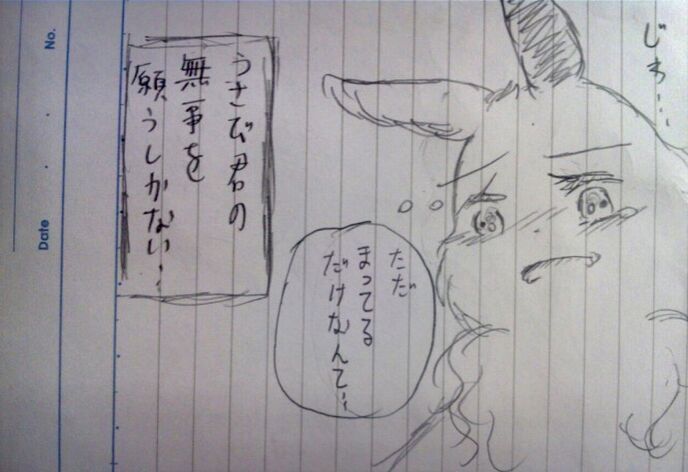 じわ…
ただ
まってる
だけなんて…
うさび君の
無事を
願うしかない…
No.
Date